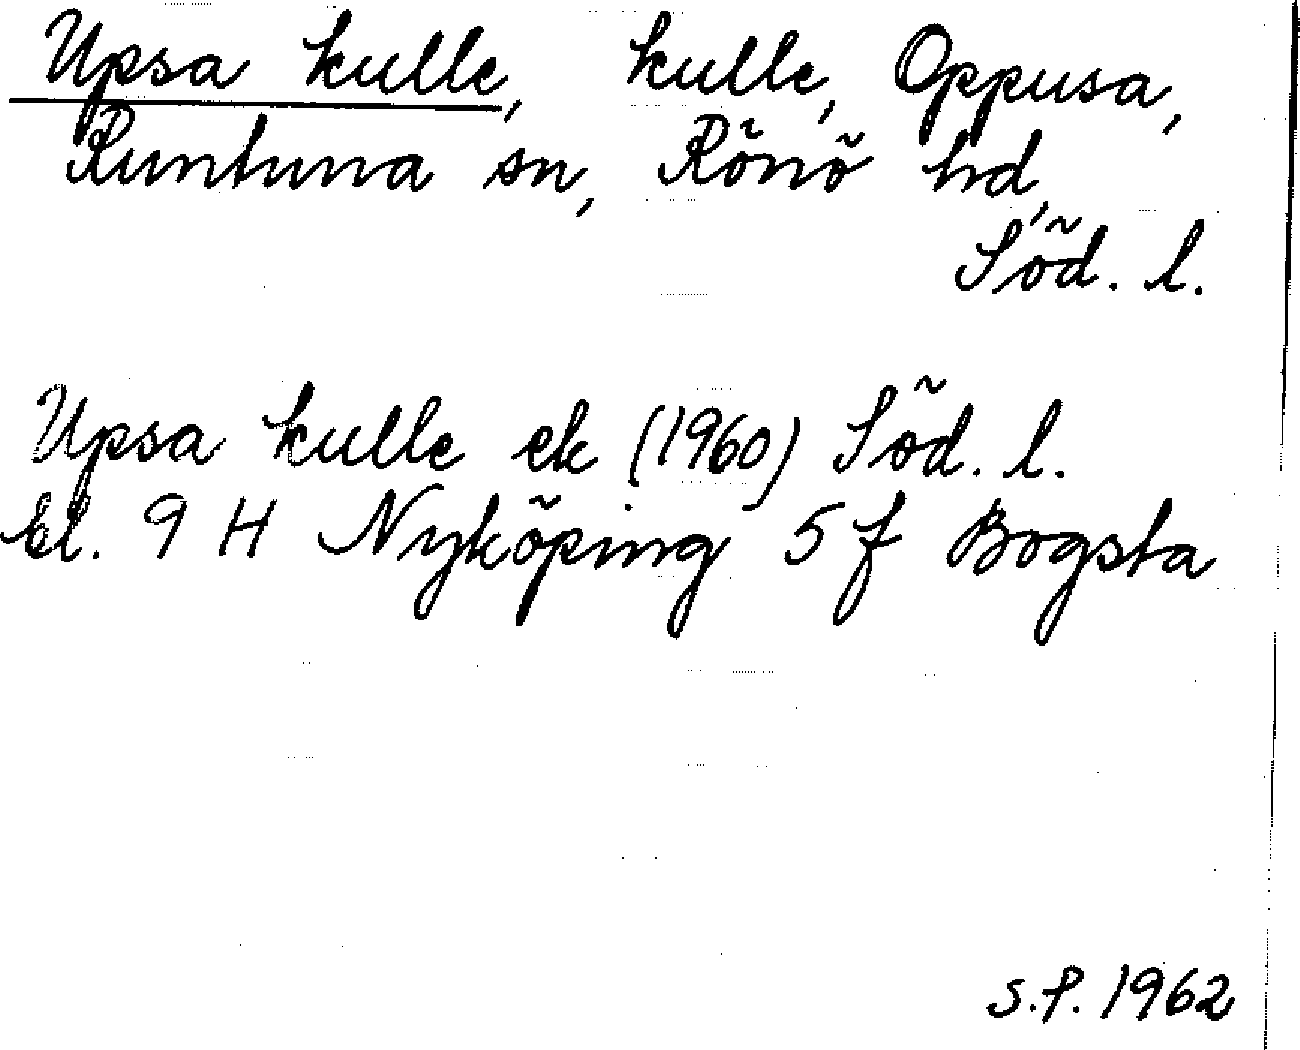 Upsa kulle, kulle, Oppusa,
Runtuna sn, Rönö hd,
Söd. l.
Upsa kulle ek (1960) Söd. l.
bl. 9 H Nyköping 5 f Bogsta
S.P. 1962